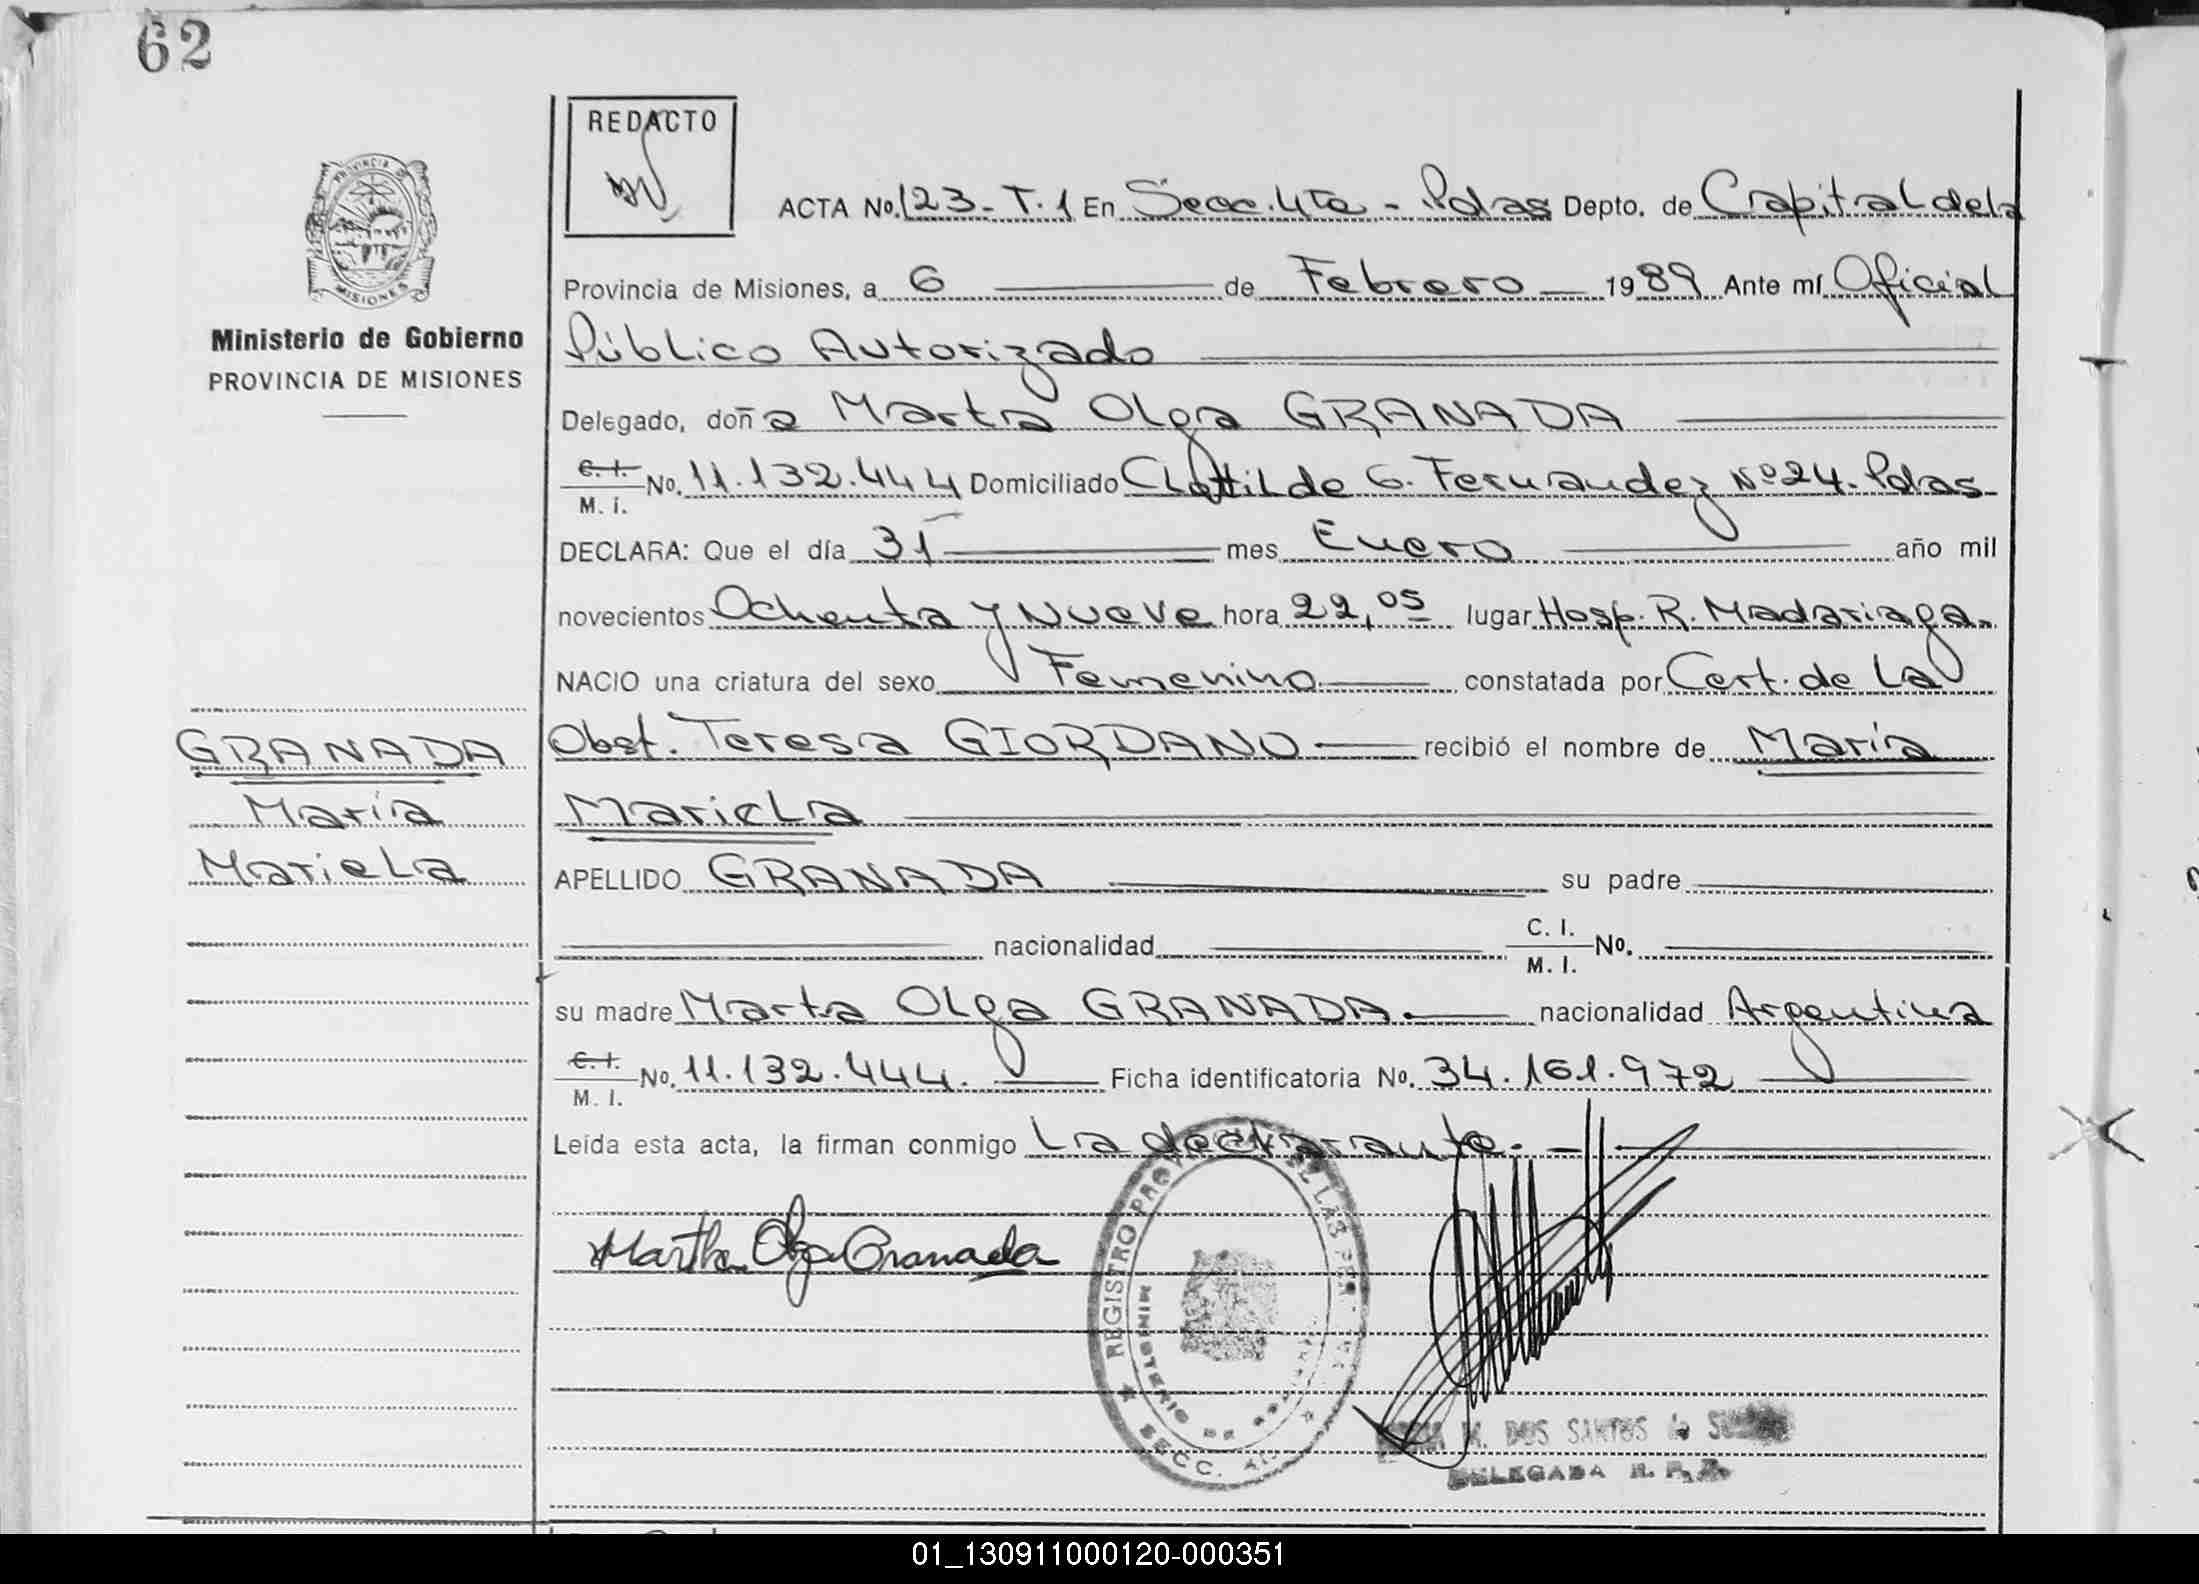 62
REDACTO
ACTA No. 123-T.1 En Secc. 4ta - Pdas Depto. de Capital de la
Provincia de Misiones, a 6 de Febrero 1989 Ante mí Oficial
Público Autorizado
Delegado, doña Marta Olga GRANADA
C. I. M. I. No. 11.132.444 Domiciliado Clotilde G. Fernandez Nº 24. Pdas
DECLARA: Que el día 31 mes Enero año mil
novecientos Ochenta y Nueve hora 22,05 lugar Hosp. R. Madariaga.
NACIO una criatura del sexo Femenino constatada por Cert. de La
Obst. Teresa GIORDANO recibió el nombre de María
Mariela
APELLIDO GRANADA su padre
nacionalidad C. I. M. I. No.
su madre Marta Olga GRANADA. nacionalidad Argentina
C. I. M. I. No. 11.132.444. Ficha identificatoria No. 34.161.972
Leída esta acta, la firman conmigo La declarante.
Martha Olga Granada
PROVINCIA DE
MISIONES
Ministerio de Gobierno
PROVINCIA DE MISIONES
GRANADA
María
Mariela
REGISTRO DE LAS PER
MINISTERIO DE
SECC.
M. DOS SANTOS de
DELEGADA R. P.
01_130911000120-000351